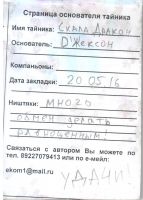 Страница основателя тайника
Имя тайника: Скала Дракон
Основатель: Д'Жексон
Компаньоны:
Дата закладки: 20 05.16
Ништяки: много
обмен делать
равноценным!
Связаться с автором Вы можете по
тел. 89227079413 или по е-мейл:
ekom1@mail.ru
УДАЧИ!